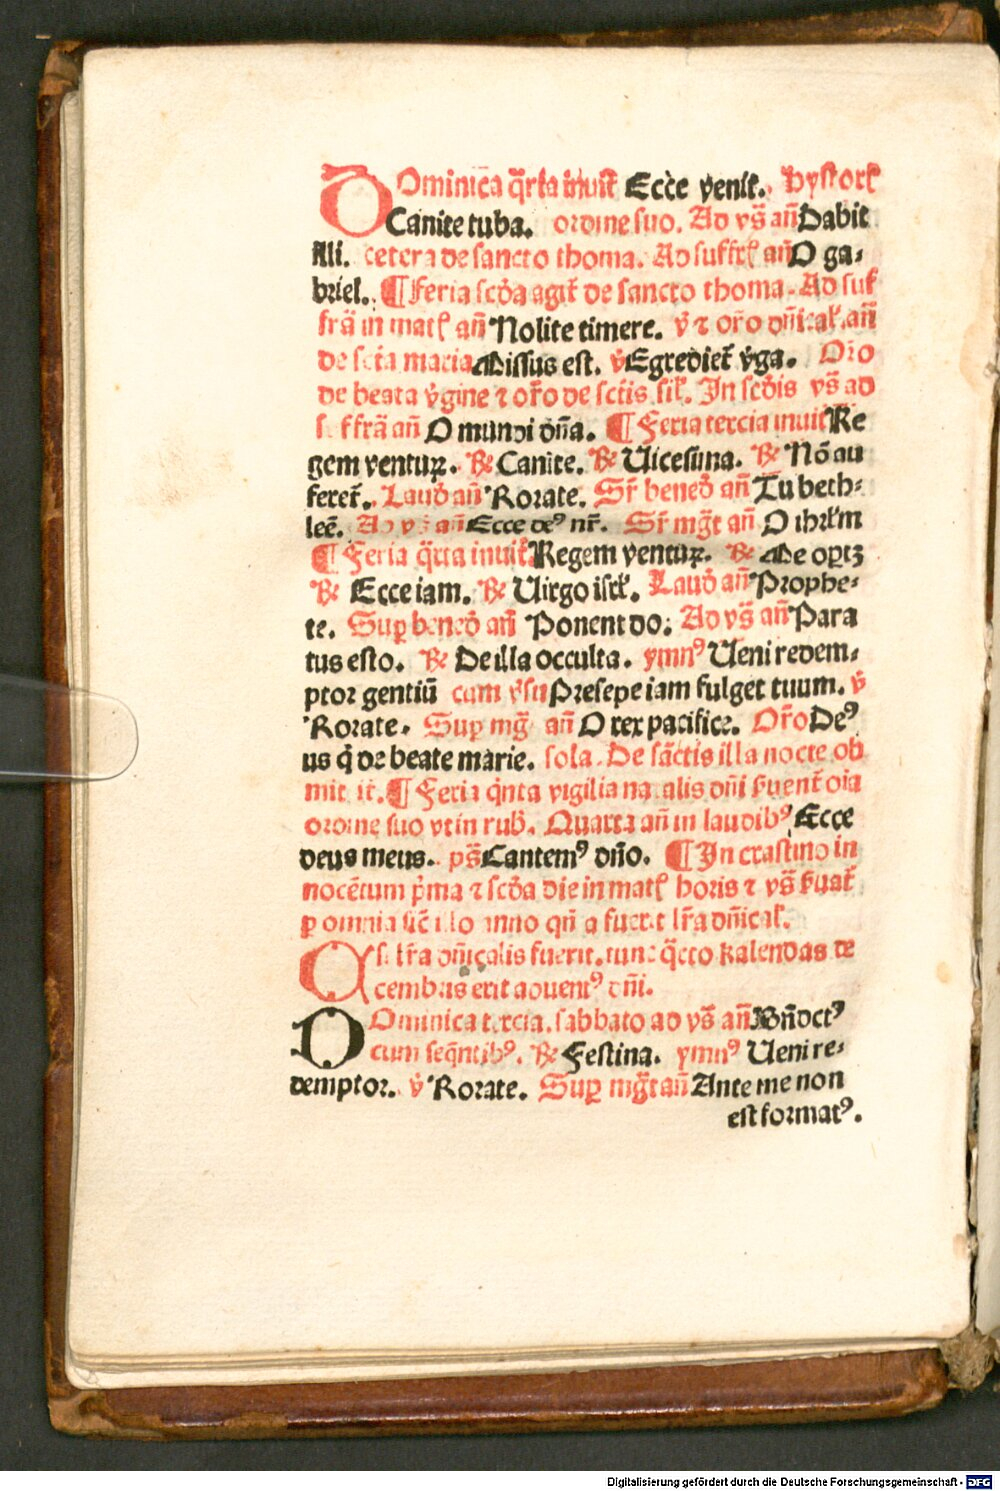 DOminica q̄rta inuit̄ Ecce venit. Hystor̄
Canite tuba. ordine suo. Ad vs̄ an̄ Dabit
illi. cetera de sancto thoma. Ad suffr̄ an̄ O ga-
briel. ¶ Feria scd̄a agit̄ de sancto thoma. Ad suf
frā in mat̄ an̄ Nolite timere. v̄ ⁊ oro dn̄ical. an̄
de sctā maria Missus est. v̄ Egrediet̄ v̄ga. Oro
de beata v̄gine ⁊ or̄o de sctīs sil̄. In scd̄is vs̄ ad
suffrā an̄ O mundi dn̄a. ¶ Feria tercia inuit̄ Re
gem ventuꝝ. ℟ Canite. ℟ Uicesima. ℟ Nō au
feret̄. Laud̄ an̄ Rorate. Sr̄ bened̄ an̄ Tu beth-
leē. Ad vs̄ an̄ Ecce de⁹ nr̄. Sr̄ mḡt an̄ O ihrl̄m
¶ Feria q̄rta inuit̄ Regem ventuꝝ. ℟ Me oꝑtꝫ
℟ Ecce iam. ℟ Uirgo isrl̄. Laud̄ an̄ Prophe-
te. Suꝑ bened̄ an̄ Ponent do. Ad vs̄ an̄ Para
tus esto. ℟ De illa occulta. ymn⁹ Ueni redem-
ptor gentiū cum v̄su Presepe iam fulget tuum. v̄
Rorate. Suꝑ mḡ an̄ O rex pacifice. Or̄o De⁹
us q̄ de beate marie. sola. De sāctis illa nocte ob
mittit̄. ¶ Feria q̄nta vigilia natalis dn̄i ẜuent̄ oīa
ordine suo vt in rub̄. Quarta an̄ in laudib⁹ Ecce
deus meus. ps̄ Cantem⁹ dn̄o. ¶ In crastino in
nocētum p̄ma ⁊ scd̄a die in mat̄ horis ⁊ vs̄ ẜuat̄
ꝑ omnia sic̄ illo anno qn̄ a fuerit lr̄a dn̄ical̄.
C si lr̄a dn̄icalis fuerit. tunc q̄rto kalendas de
cembris erit aduent⁹ dn̄i.
DOminica tercia. sabbato ad vs̄ an̄ Bn̄dct⁹
cum seq̄ntib⁹. ℟ Festina. ymn⁹ Ueni re-
demptor. v̄ Rorate. Suꝑ mḡt an̄ Ante me non
est format⁹.
Digitalisierung gefördert durch die Deutsche Forschungsgemeinschaft - DFG